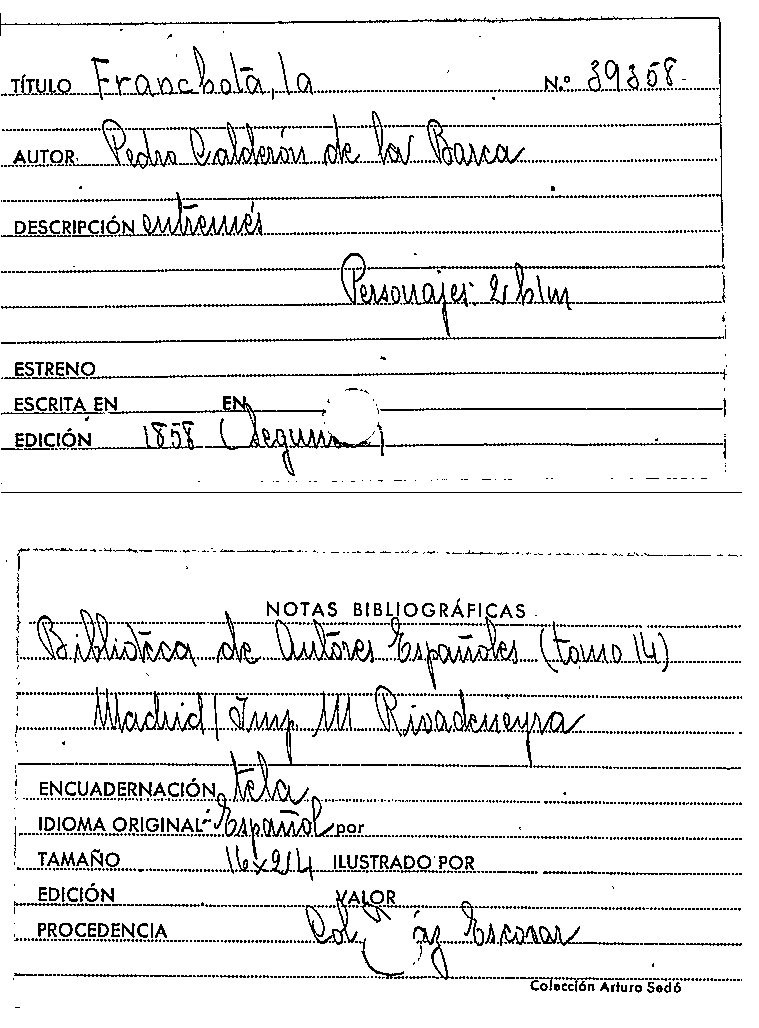 TÍTULO Franchota, la N.º 39358
AUTOR Pedro Calderón de la Barca
DESCRIPCIÓN entremés
Personajes: 2 h 1 m
ESTRENO
ESCRITA EN EN
EDICIÓN 1858
NOTAS BIBLIOGRÁFICAS
Biblioteca de Autores Españoles (tomo 14)
Madrid / Imp. M Rivadeneyra
ENCUADERNACIÓN tela
IDIOMA ORIGINAL Español por
TAMAÑO 16x24 ILUSTRADO POR
EDICIÓN VALOR
PROCEDENCIA Escovar
Colección Arturo Sedó